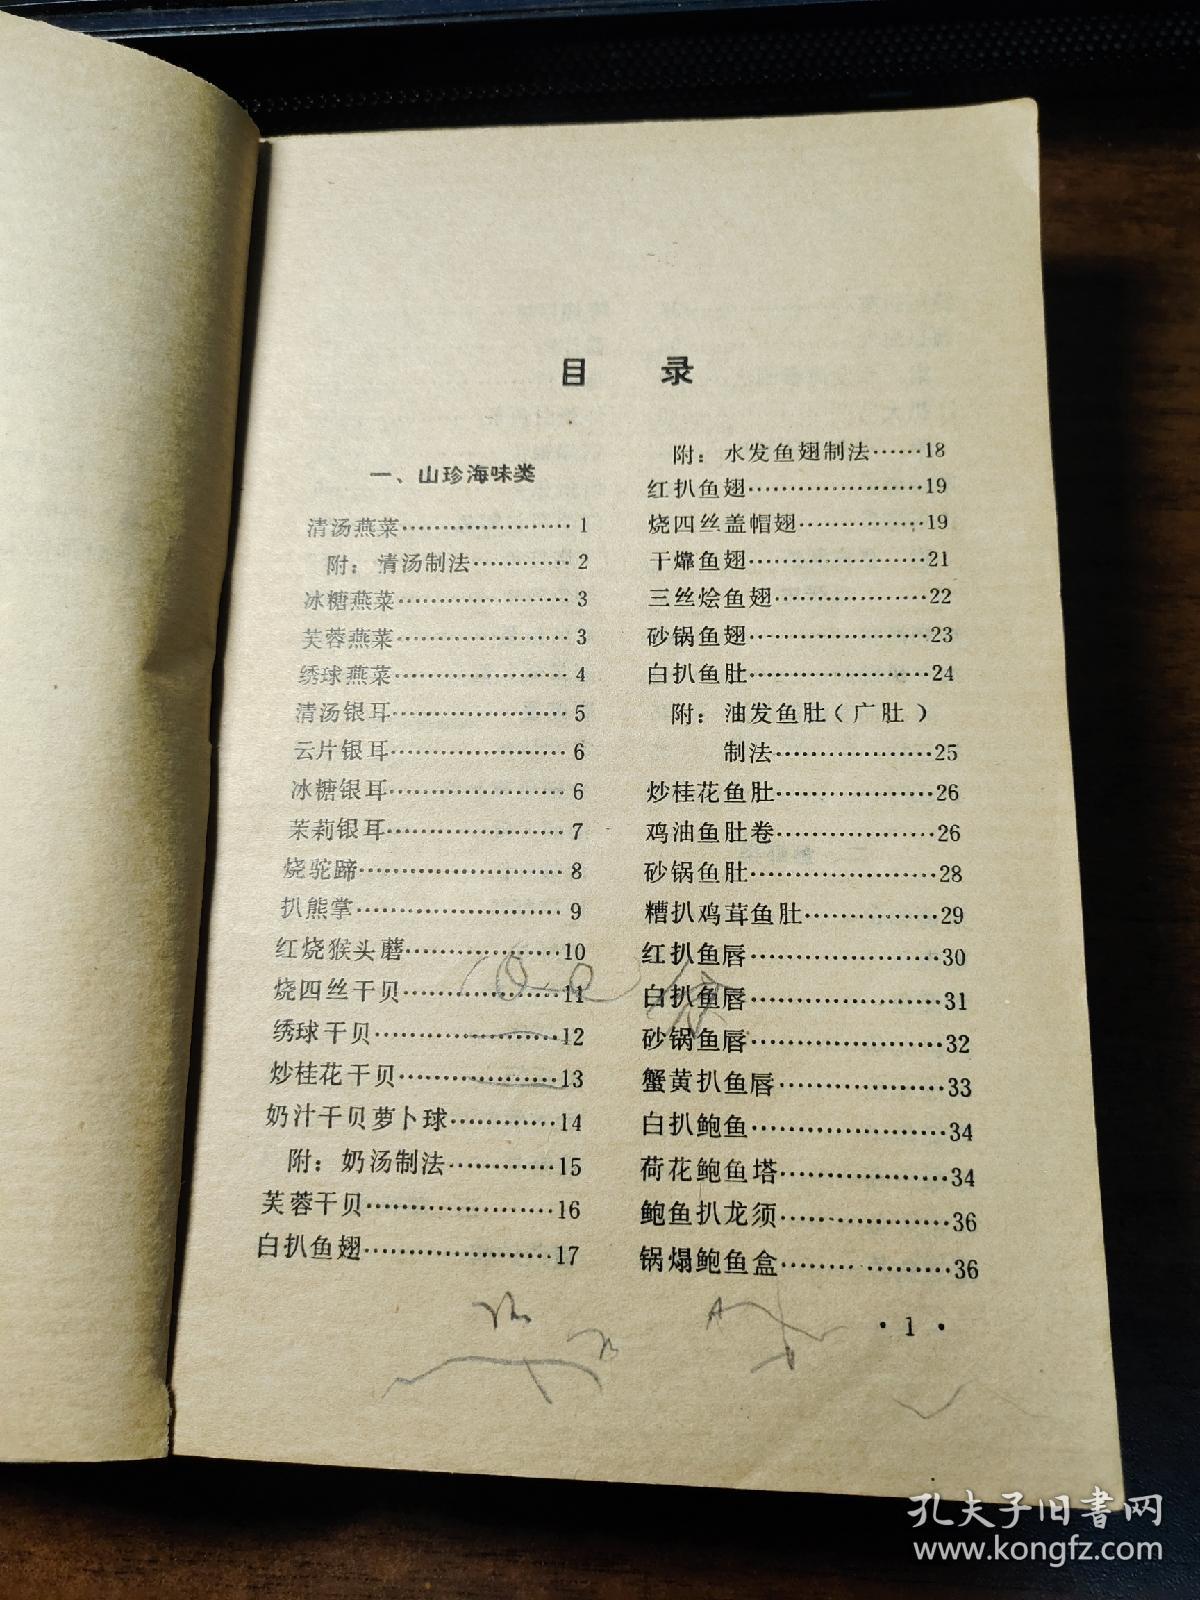 目 录
一、山珍海味类
清汤燕菜……………………1
附：清汤制法…………2
冰糖燕菜……………………3
芙蓉燕菜……………………3
绣球燕菜……………………4
清汤银耳……………………5
云片银耳……………………6
冰糖银耳……………………6
茉莉银耳……………………7
烧驼蹄………………………8
扒熊掌………………………9
红烧猴头蘑…………………10
烧四丝干贝…………………11
绣球干贝……………………12
炒桂花干贝…………………13
奶汁干贝萝卜球…………14
附：奶汤制法…………15
芙蓉干贝……………………16
白扒鱼翅……………………17
附：水发鱼翅制法……18
红扒鱼翅……………………19
烧四丝盖帽翅………………19
干㸆鱼翅……………………21
三丝烩鱼翅…………………22
砂锅鱼翅……………………23
白扒鱼肚……………………24
附：油发鱼肚（广肚）
制法………………25
炒桂花鱼肚…………………26
鸡油鱼肚卷…………………26
砂锅鱼肚……………………28
糟扒鸡茸鱼肚………………29
红扒鱼唇……………………30
白扒鱼唇……………………31
砂锅鱼唇……………………32
蟹黄扒鱼唇…………………33
白扒鲍鱼……………………34
荷花鲍鱼塔…………………34
鲍鱼扒龙须…………………36
锅塌鲍鱼盒…………………36
· 1 ·
孔夫子旧书网
www.kongfz.com